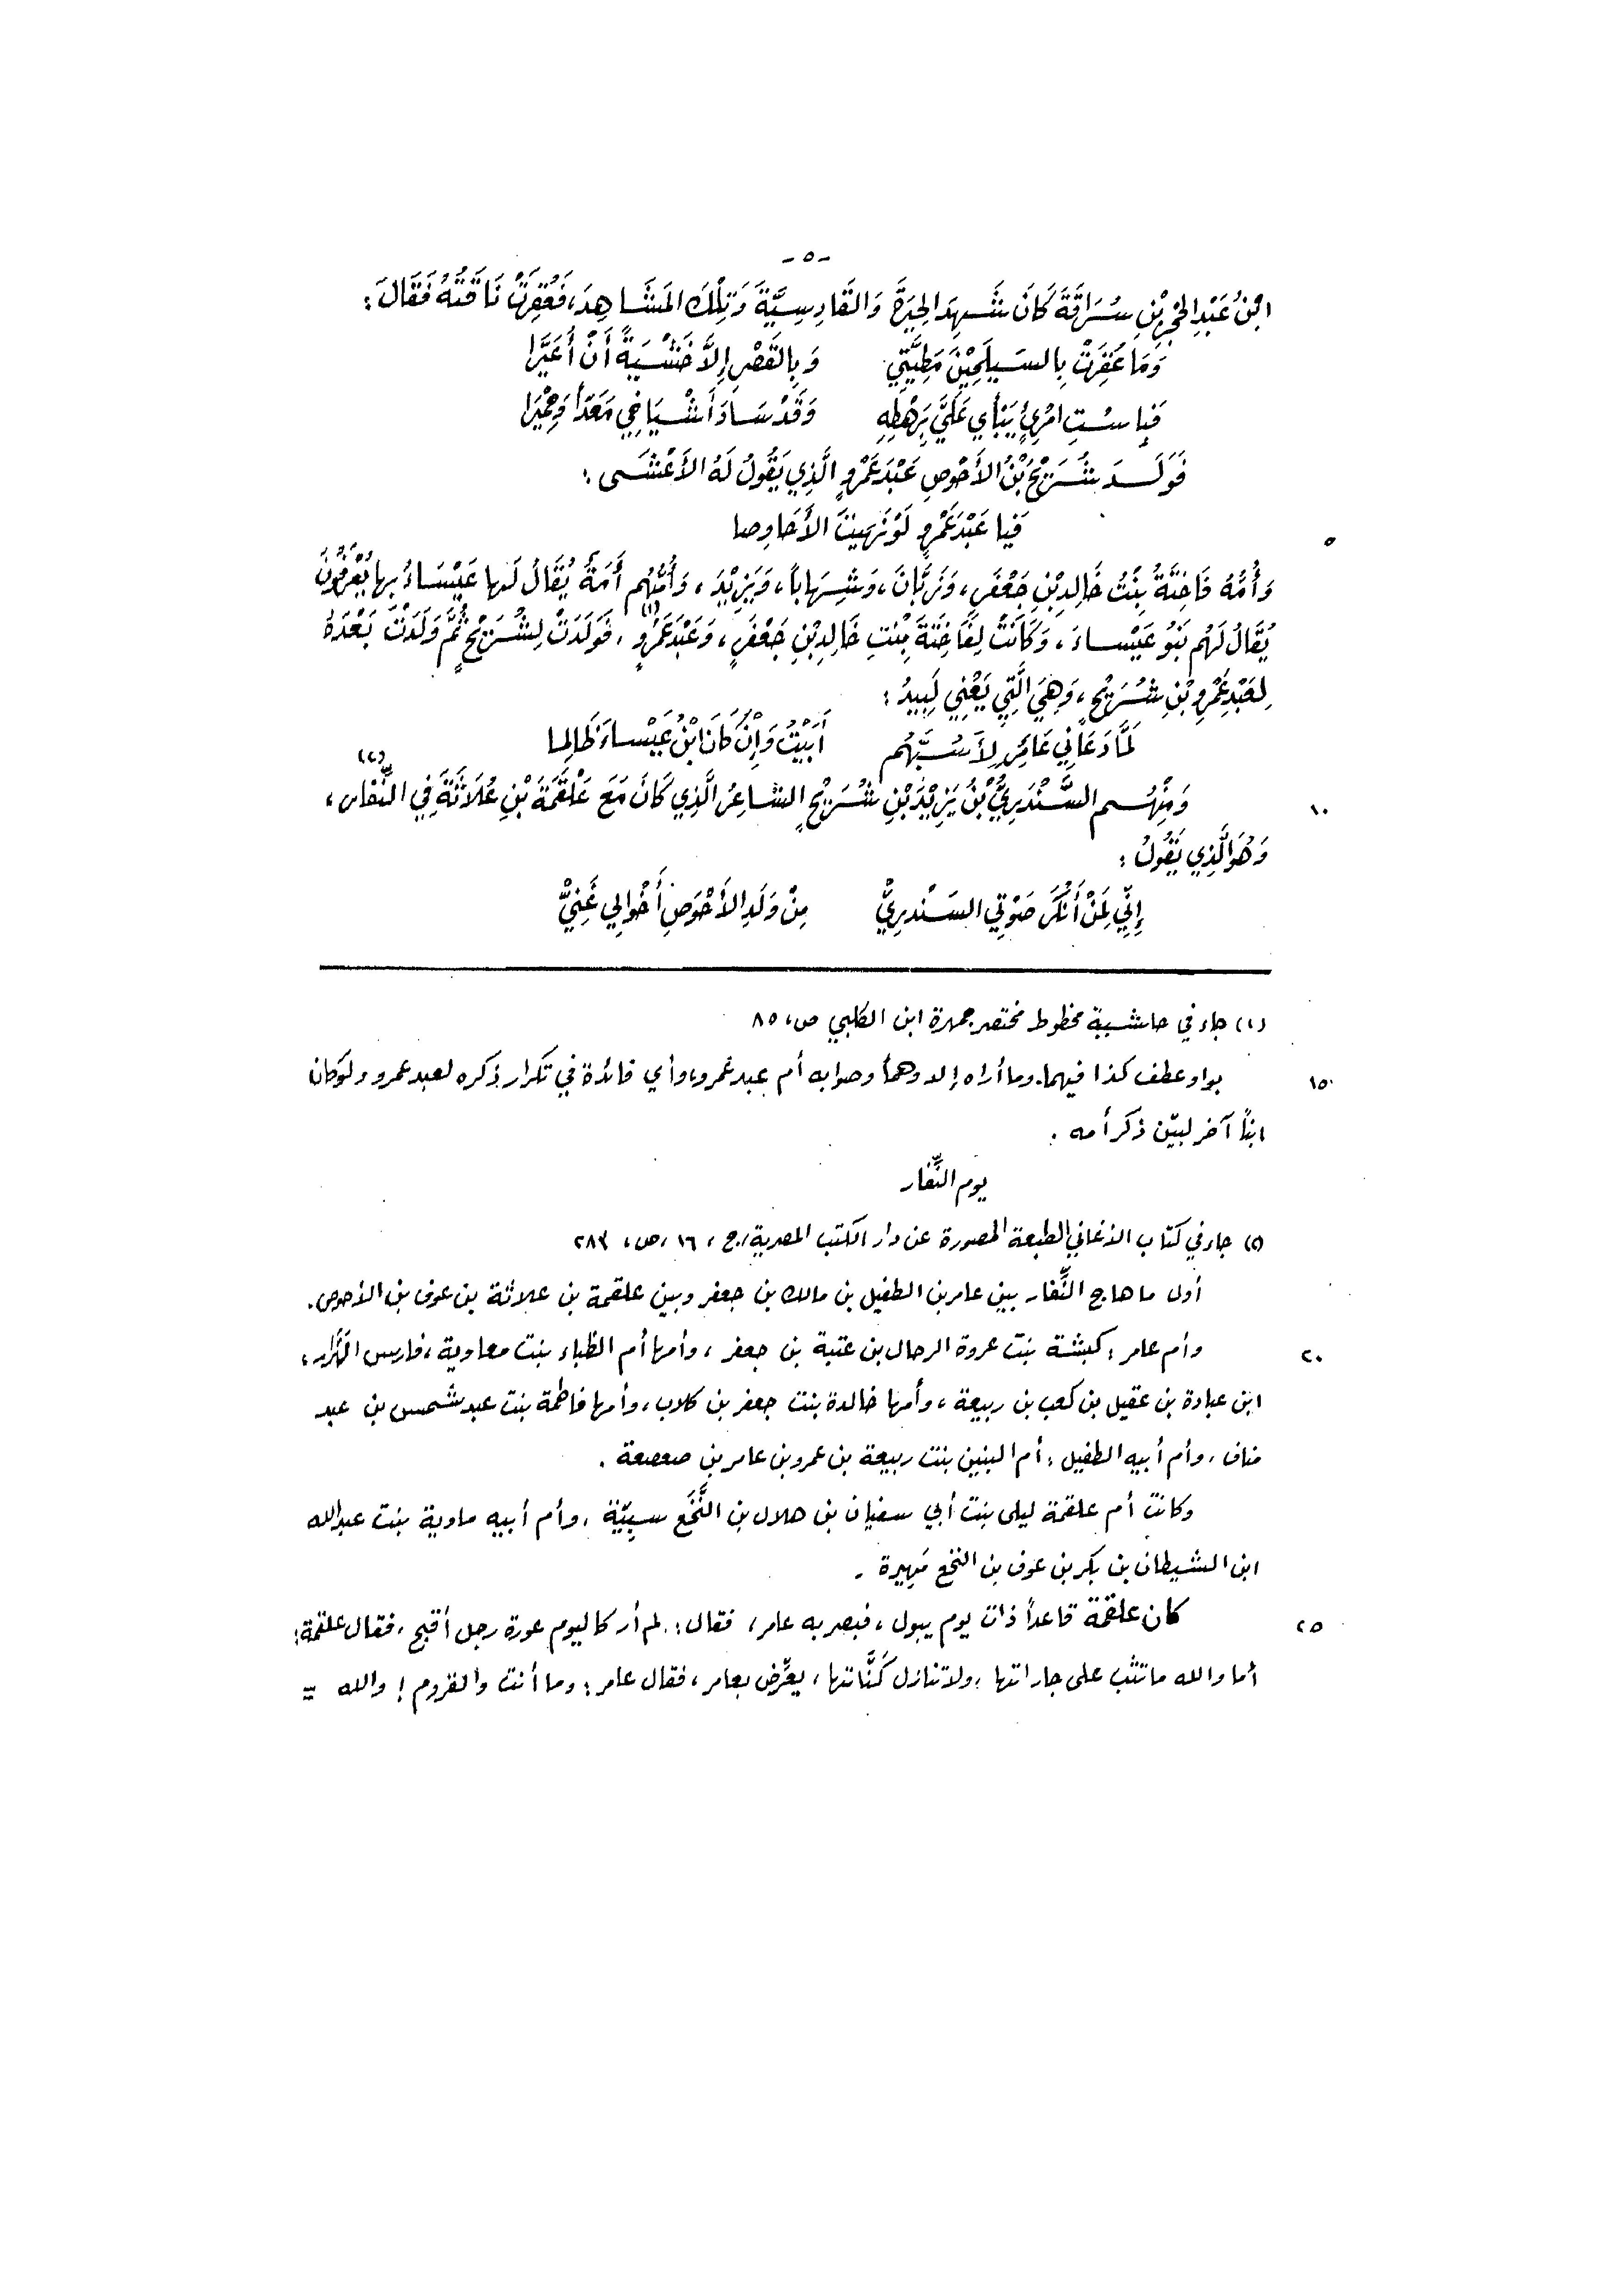 -٥-
ابْنُ عَبْدِ الحِجْرِ بْنِ سُرَاقَةَ كَانَ شَهِدَ الحِيْرَةَ وَالقَادِسِيَّةَ وَتِلْكَ المَشَاهِدَ، فَعُقِرَتْ نَاقَتُهُ فَقَالَ:
وَمَا عُقِرَتْ بِالسَيلَحِيْنَ مَطِيَّتِي وَبِالقَصْرِ إِلاَّ خَشْيَةً أَنْ أُعَيَّرا
فَبِاسْتِ امْرِئٍ يَبْأى عَلَيَّ بِرَهْطِهِ وَقَدْ سَادَ أَشْيَاخِي مَعَدّاً وَحِمْيَرا
فَوَلَدَ شُرَيْحُ بْنُ الأَحْوصِ عَبْدَ عَمْرٍو الَّذِي يَقُولُ لَهُ الأَعْشَى:
٥ فَيا عَبْدَ عَمْرٍو لَوْ نَهَيْتَ الأَحَاوِصا
وَأُمُّهُ فَاخِتَةُ بِنْتُ خَالِدِ بْنِ جَعْفَرٍ، وَزَبَّانَ، وَشِهَاباً، وَيَزِيْدَ، وَأُمُّهُم أَمَةٌ يُقَالُ لَها عَيْسَاءُ بِها يُعْرَفُونَ
يُقَالُ لَهُم بَنُو عَيْساءَ، وَكَانَتْ لِفَاخِتَةَ بِنْتِ خَالِدِ بْنِ جَعْفَرٍ، وَعَبْدَ عَمْرٍو(١)، فَوَلَدَتْ لِشُرَيْحٍ ثُمَّ وَلَدَتْ بَعْدَهُ
لِعَبْدِ عَمْرِو بْنِ شُرَيْحٍ، وَهِيَ الَّتِي يَعْنِي لَبِيدُ:
لَمَّا دَعَانِي عَامِرٌ لِأَسُبَّهُم أَبَيْتُ وَإِنْ كَانَ ابْنُ عَيْساءَ ظَالِما
١٠ وَمِنْهُم السَّنْدَرِيُّ بْنُ يَزِيْدَ بْنِ شُرَيْحٍ الشاعِرُ الَّذِي كَانَ مَعَ عَلْقَمَةَ بْنِ عُلاَثَةَ فِي النِّفَارِ(٢)،
وَهُوَ الَّذِي يَقُولُ:
إِنِّي لِمَنْ أَنْكَرَ صَوْتِي السَنْدرِيُّ مِنْ وَلَدِ الأَحْوَصِ أَخْوالِي غَنِيُّ
(١) جاء في حاشية مخطوط مختصر جمهرة ابن الكلبي ص، ٨٥
١٥ بواو عطف كذا فيهما. وما أراه إلا وهماً وصوابه أم عبد عمرو، وأي فائدة في تكرار ذكره لعبد عمرو ولو كان
ابناً آخر لبيّن ذكر أمه.
يوم النِّفار
(٢) جاء في كتاب الأغاني الطبعة المصورة عن دار الكتب المصرية، ج، ١٦، ص، ٢٨٣
أول ما هاج النِّفار بين عامر بن الطفيل بن مالك بن جعفر وبين علقمة بن علاثة بن عوف بن الأحوص.
٢٠ وأم عامر: كبشة بنت عروة الرحال بن عتبة بن جعفر، وأمها أم الظباء بنت معاوية، فارس الهَرَّار،
ابن عبادة بن عقيل بن كعب بن ربيعة، وأمها خالدة بنت جعفر بن كلاب، وأمها فاطمة بنت عبد شمس بن عبد
مناف، وأم أبيه الطفيل: أم البنين بنت ربيعة بن عمرو بن عامر بن صعصعة.
وكانت أم علقمة ليلى بنت أبي سفيان بن هلال بن النَّخَع سبيّة، وأم أبيه ماوية بنت عبد الله
ابن الشيطان بن بكر بن عوف بن النخع مَهِيرة.
٢٥ كان علقمة قاعداً ذات يوم يبول، فبصر به عامر، فقال: لم أر كاليوم عورة رجل أقبح، فقال علقمة:
أما والله ما تثب على جاراتها، ولا تنازل كَنَّاتها، يعرِّض بعامر، فقال عامر: وما أنت والقروم! والله =